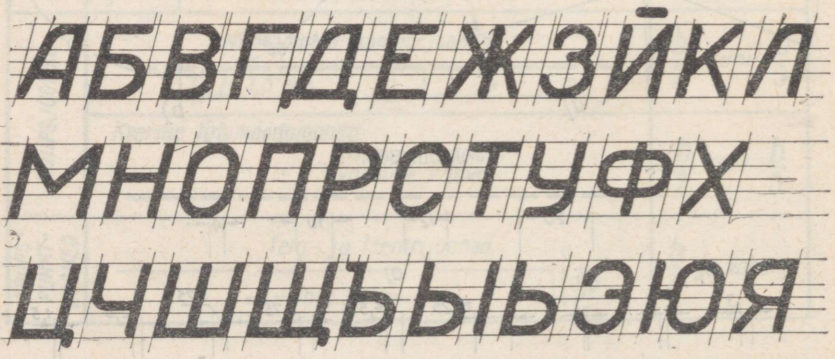 АБВГДЕЖЗЙКЛ
МНОПРСТУФХ
ЦЧШЩЪЫЬЭЮЯ